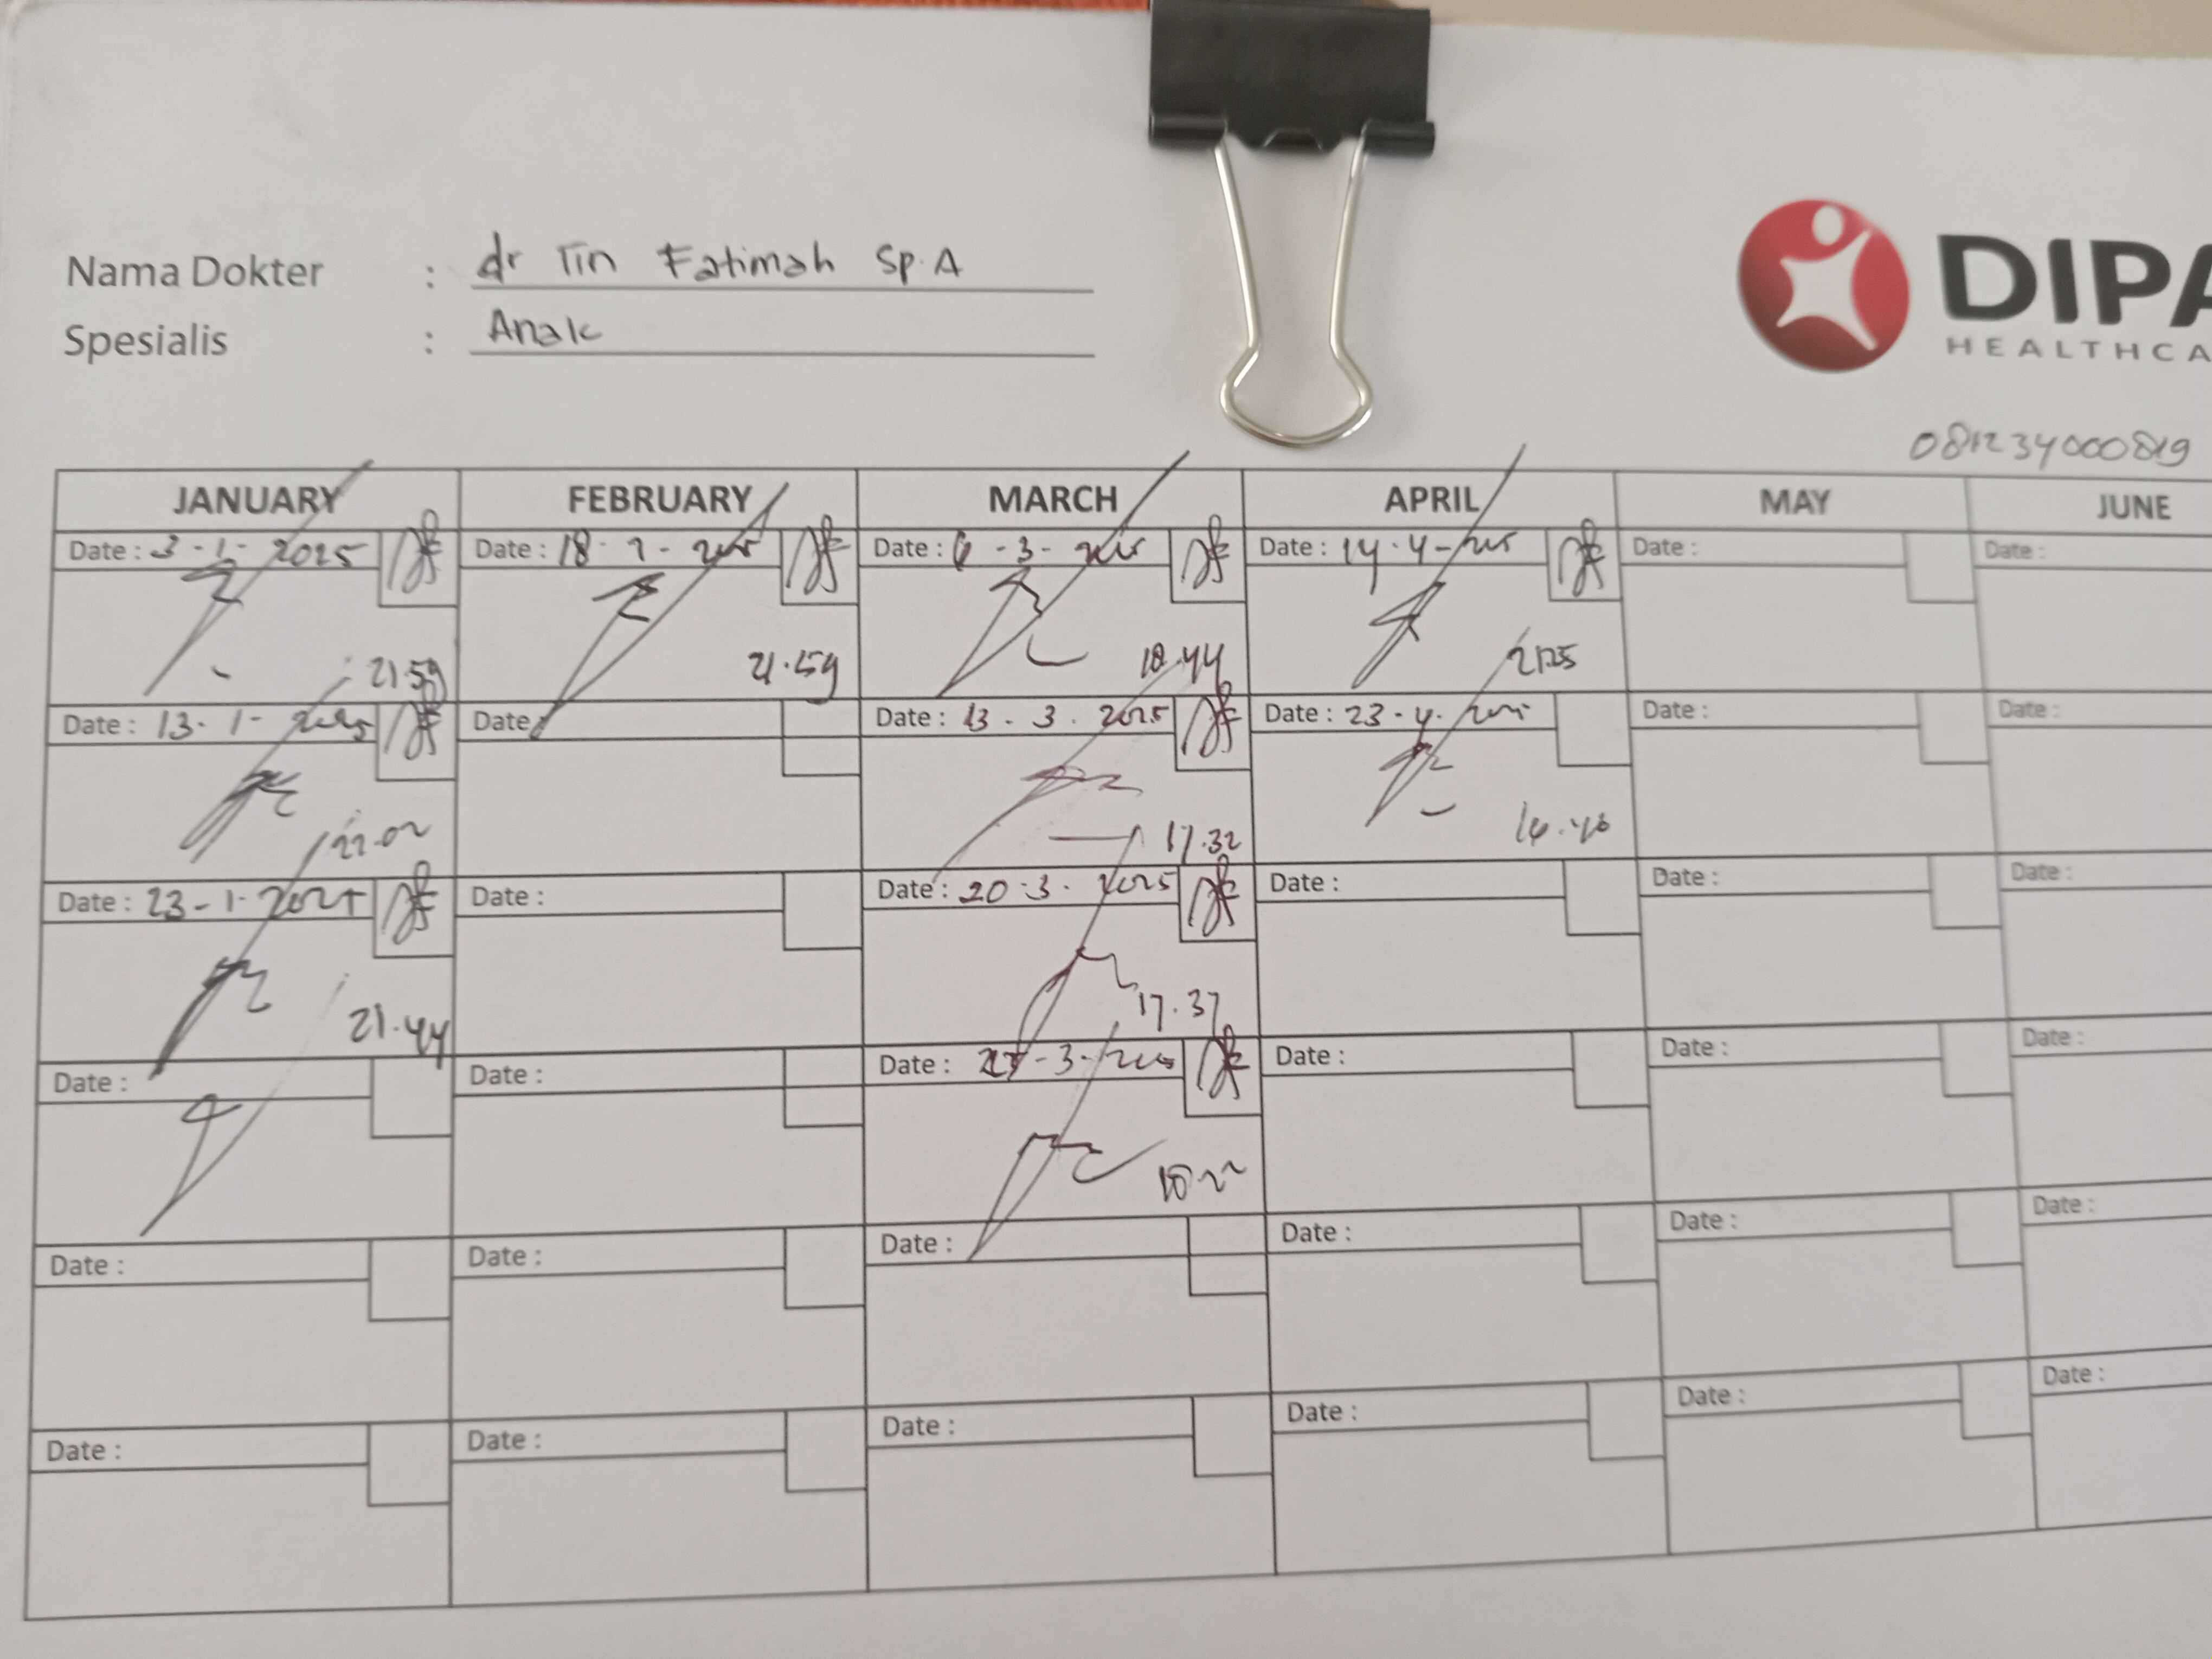 Nama Dokter : dr Tin Fatimah Sp.A
Spesialis : Anak
DIPA
HEALTHCA
081234000819
JANUARY FEBRUARY MARCH APRIL MAY JUNE
Date : 3 - 1 - 2025 Date : 18 - Date : - 3 - Date : 14 - 4 - Date : Date :
21.59 21.59 18.44 2125
Date : 13 - 1 - Date : Date : 13 - 3 - 2025 Date : 23 - 4 - Date : Date :
22.02 17.32
Date : 23 - 1 - Date : Date : 20 - 3 - 2025 Date : Date : Date :
21.44 17.37
Date : Date : Date : - 3 - Date : Date : Date :
Date : Date : Date : Date : Date : Date :
Date : Date : Date : Date : Date : Date :